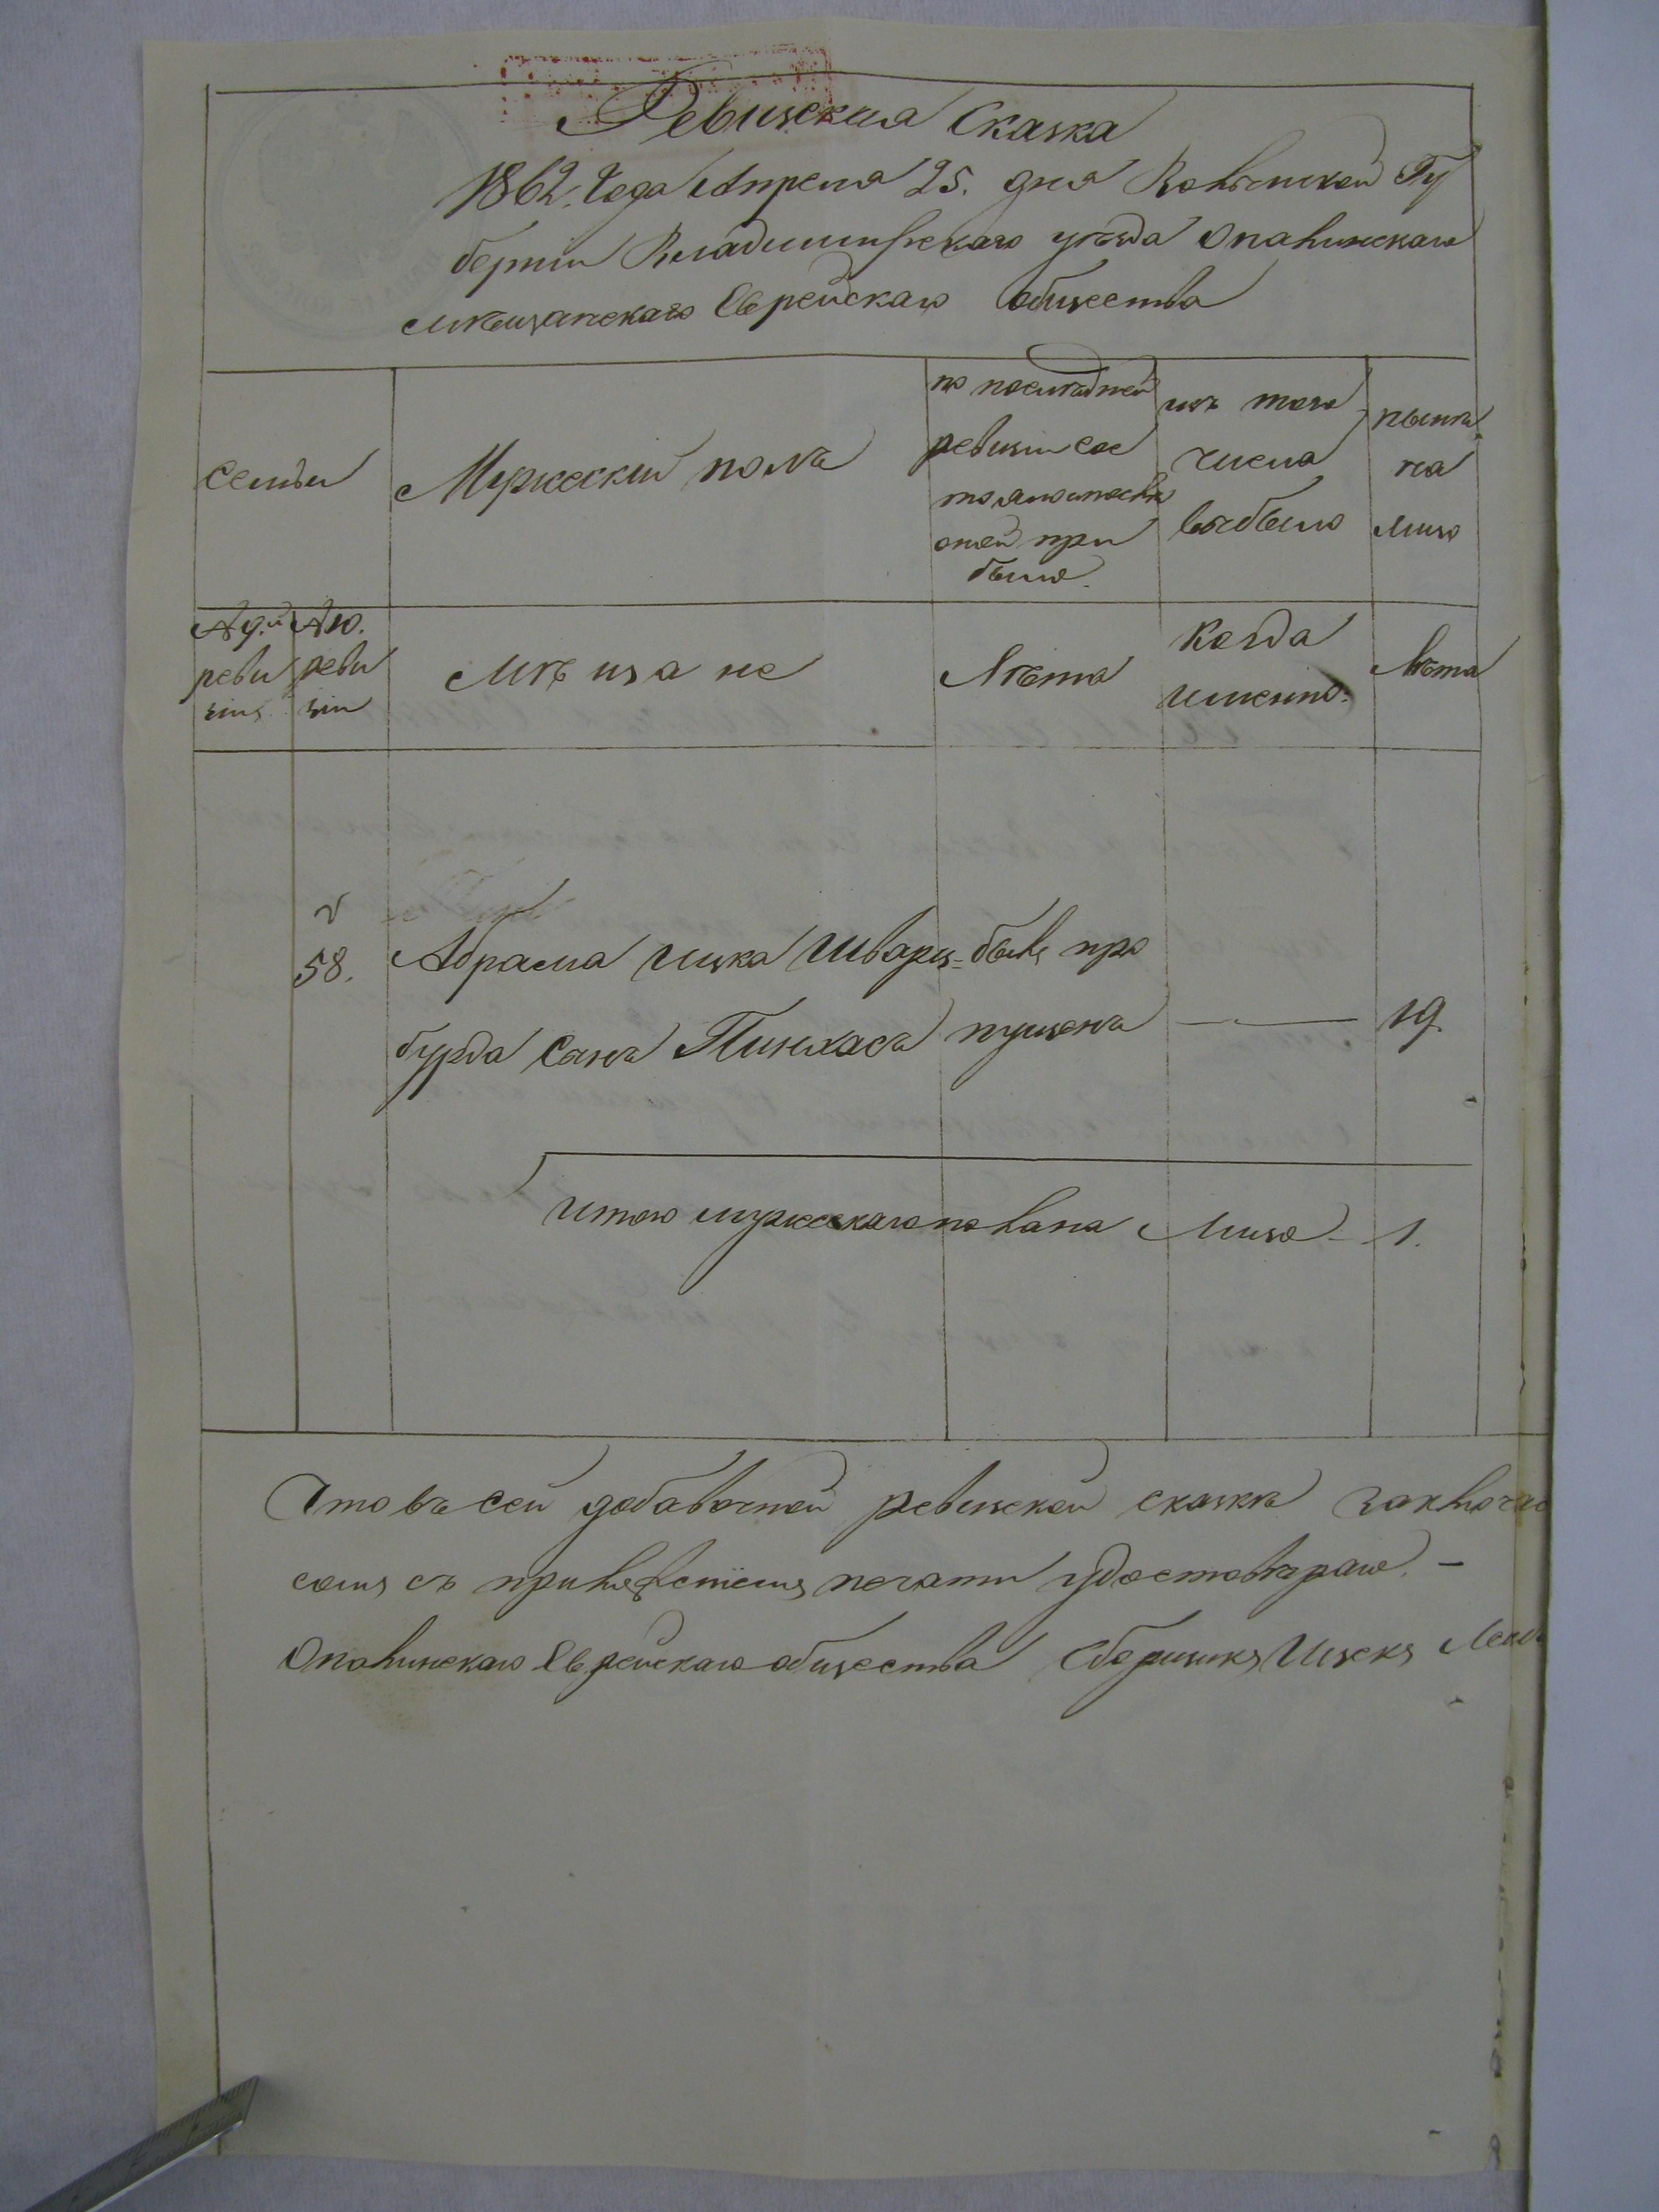 Ревизская Сказка
1862. Года Апреля 25. дня Волынской Гу
берніи Владимирскаго уѣзда Опалинскаго
мѣщанскаго Еврейскаго общества
Семьи
Мужескій полъ
по послѣдней
ревизіи сос
тояло и послѣ
оной при
было.
изъ того
числа
выбыло
нынѣ
на
лицо
№ 9.й
реви
зіи
№ 10.
реви
зіи
Мѣщане
Лѣта
Когда
именно.
Лѣта
58.
Абрама Ицка Шварц=
бурда Сынъ Пинхасъ
былъ про
пущенъ
19.
Итого мужескаго пола на Лицо - 1.
Что въ сей добавочной ревизской сказкѣ заключаю
съ печати удостовѣряю. -
Опалинскаго Еврейскаго общества Сборщикъ Ицекъ